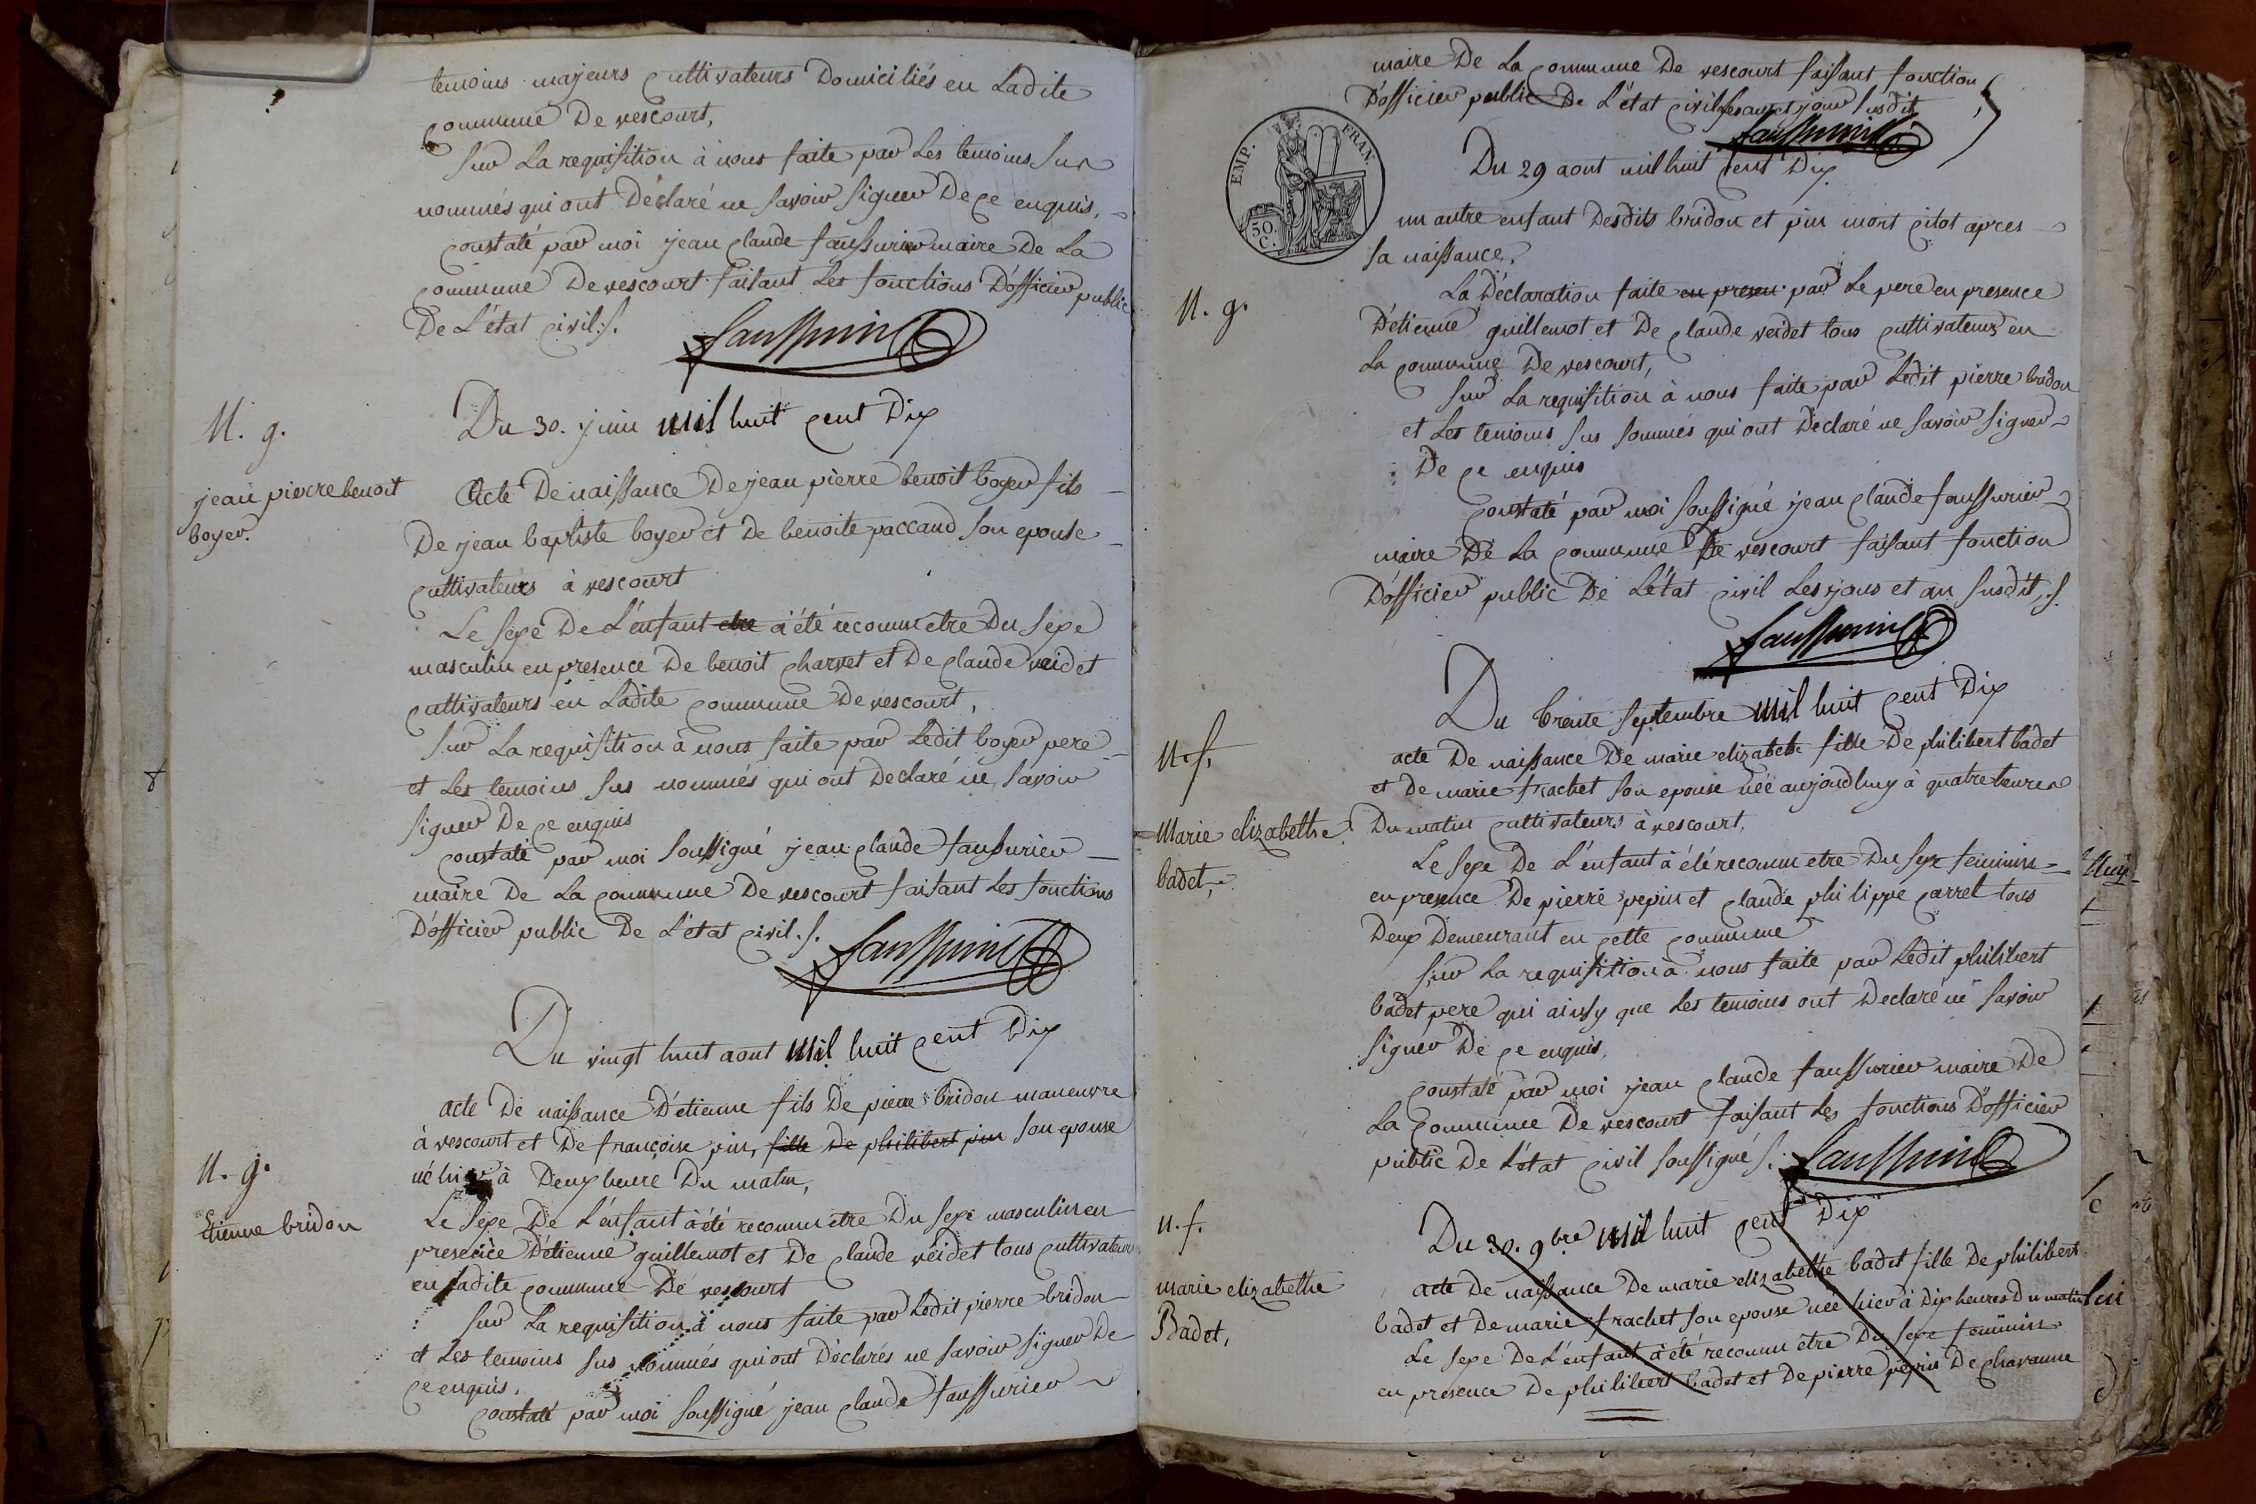 temoins majeurs cultivateurs Domiciliés en Ladite
commune De vescourt,
Sur La requisition à nous faite par Les temoins sus
nommés qui ont Déclaré ne savoir signer De ce enquis,
constaté par moi jean claude faussurier maire De La
commune De vescourt faisant Les fonctions D'officier public
De L'état civil./.
faussurier
Du 30. juin mil huit cent Dix
N. g.
jean pierre benoit
boyer.
Acte De naissance De jean pierre benoit boyer fils
De jean baptiste boyer et De benoite paccaud son epouse
cultivateurs à vescourt
Le sexe De L'enfant etre à été reconnu etre Du sexe
masculin en presence De benoit charvet et De claude veidet
cultivateurs en Ladite commune De vescourt,
sur La requisition à nous faite par Ledit boyer pere
et Les temoins sus nommés qui ont Declaré ne savoir
signer De ce enquis
constaté par moi soussigné jean claude faussurier
maire De La commune De vescourt faisant Les fonctions
D'officier public De L'état civil./.
faussurier
Du vingt huit aout mil huit cent Dix
N. g.
Etienne bridon
acte De naissance D'etienne fils De pierre bridon maneuvre
à vescourt et De françoise pin, fille De philibert pin son epouse
né hier à Deux heure Du matin,
Le sexe De L'enfant à été reconnu etre Du sexe masculin en
presence D'etienne guillemot et De claude veidet tous cultivateurs
en Ladite commune De vescourt
sur La requisition à nous faite par Ledit pierre bridon
et Les temoins sus nommés qui ont Déclarés ne savoir signer De
ce enquis,
constaté par moi soussigné jean claude faussurier
maire De La commune De vescourt faisant fonction
D'officier public De L'état civil Les an et jour susdit
faussurier
EMP. FRAN.
50.
C.
Du 29 aout mil huit cent Dix
un autre enfant Desdits bridon et pin mort citot apres
sa naissance,
N. g.
La Déclaration faite en presen par Le pere en presence
D'etienne guillemot et De claude veidet tous cultivateurs en
La commune De vescourt,
sur La requisition à nous faite par Ledit pierre bridon
et Les temoins sus sommés qui ont Declaré ne savoir signer
De ce enquis
constaté par moi soussigné jean claude faussurier
maire De La commune De vescourt faisant fonction
D'officier public De L'état civil Les jour et an susdit, ./.
faussurier
Du trente septembre mil huit cent Dix
N. f.
Marie elizabethe
badet,
acte De naissance De marie elizabethe fille De philibert badet
et De marie frachet son epouse née aujourdhuy à quatre heures
Du matin cultivateurs à vescourt,
Le sexe De L'enfant à été reconnu etre Du sexe feminin
en presence De pierre pepin et claude philippe carrel tous
Deux Demeurant en cette commune
sur La requisition à nous faite par Ledit philibert
badet pere qui ainsy que Les temoins ont Declaré ne savoir
signer De ce enquis,
constaté par moi jean claude faussurier maire De
La commune De vescourt faisant Les fonctions D'officier
public De L'état civil soussigné ./.
faussurier
Du 30. 9bre mil huit cent Dix
n. f.
marie elizabethe
Badet,
acte De naissance De marie elizabethe badet fille De philibert
badet et De marie frachet son epouse née hier à Dix heures Du matin
Le sexe De L'enfant à été reconnu etre Du sexe feminin
en presence De philibert badet et De pierre pepin De chavanne